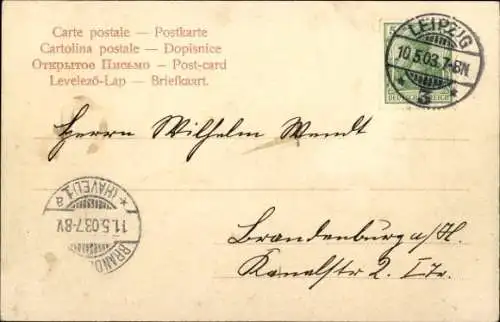 Carte postale — Postkarte
Cartolina postale — Dopisnice
Открытое Письмо — Post-card
Levelező-Lap — Briefkaart.
LEIPZIG
10.5.03.7-8N
* 3 *
DEUTSCHES REICH
Herrn Wilhelm Wendt
BRAND
(HAVEL)1
11.5.03.7-8V
* a
Brandenburg a/H.
Kanalstr 2. I Tr.